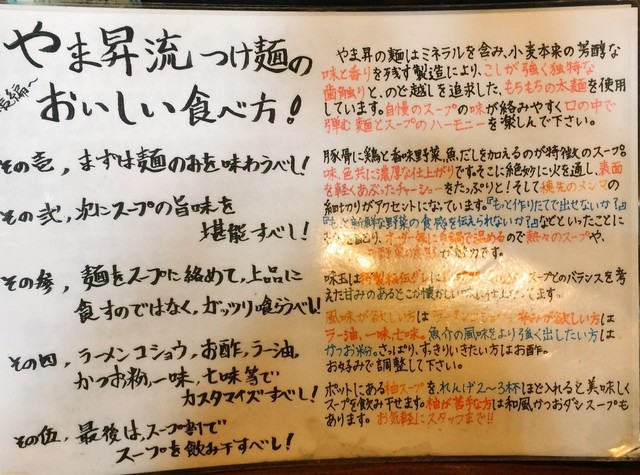 やま昇流つけ麺の
おいしい食べ方!
その壱, まずは麺のみを味わうべし!
その弐, 次にスープの旨味を
堪能すべし!
その参, 麺をスープに絡めて, 上品に
食すのではなく, ガッツリ喰らうべし!
その四, ラーメンコショウ, お酢, ラー油,
かつお粉, 一味, 七味等で
カスタマイズすべし!
その伍, 最後は, スープ割で
スープを飲み干すべし!
やま昇の麺はミネラルを含み、小麦本来の芳醇な
味と香りを残す製法により、こしが強く独特な
歯触りと、のど越しを追求した、もちもちの太麺を使用
しています。自慢のスープの味が絡みやすく口の中で
弾む麺とスープのハーモニーを楽しんで下さい。
豚骨に鶏と香味野菜、魚だしを加えるのが特徴のスープ。
味、色共に濃厚な仕上がりです。そこに絶妙に火を通し、表面
を軽くあぶったチャーシューをたっぷりと!そして穂先のメンマの
細切りがアクセントになっています。『もっと作りたてで出せないか?』
新鮮な野菜の食感を伝えられないか?』などといったことに
ので熱々のスープや、
味玉は
スープとのバランスを考
えた甘みのあるどこか懐かしい
風味が欲しい方は
ラー油、一味、七味。魚介の風味をより強く出したい方は
かつお粉。さっぱり、すっきりいきたい方はお酢。
お好みで調整して下さい。
ポットにある柚スープを、れんげ2〜3杯ほど入れると美味しく
スープを飲み干せます。柚が苦手な方は和風かつおダシスープも
あります。お気軽にスタッフまで!!